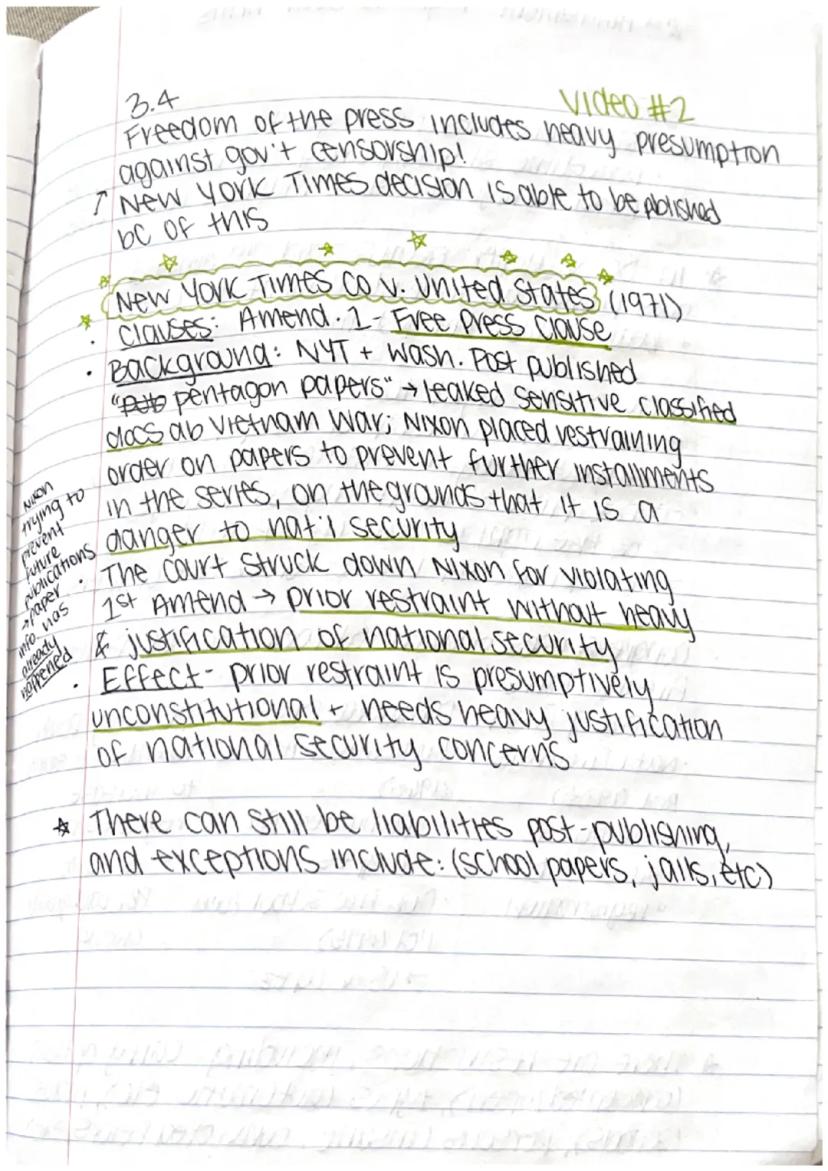 3.4
Video #2
Freedom of the press includes heavy presumption
against gov't censorship!
↑ New York Times decision is able to be pblished
bc of this
New York Times Co v. United States (1971)
• Clauses: Amend. 1 - Free Press Clause
• Background: NYT + Wash. Post published
" pentagon papers" → leaked sensitive classified
docs ab Vietnam War; Nixon placed restraining
order on papers to prevent further installments
in the series, on the grounds that it is a
danger to nat'l security
Nixon
trying to
prevent
future
publications
→ paper
info has
already
happened
• The Court struck down Nixon for violating
1st Amend → prior restraint without heavy
& justification of national security
• Effect - prior restraint is presumptively
unconstitutional + needs heavy justification
of national security concerns
☆ There can still be liabilities post-publishing,
and exceptions include: (school papers, jails, etc)